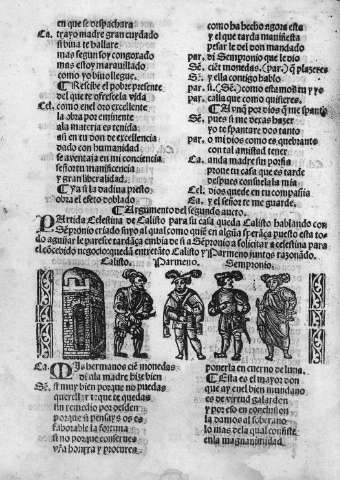 en que se despachara
Ca. trayo madre gran cuydado
si biua te hallare
mas segun soy congoxado
mas estoy marauillado
como yo biuo llegue.
¶ Recibe el pobre presente
del que te ofresce la vida
Cel. como enel oro excellente
la obra por eminente
ala materia es tenida
assi en tu don de excellencia
dado con humanidad
se auentaja en mi conciencia
señor tu manificencia
y gran liberalidad.
¶ Ya si la dadiua presto
obra el efeto doblado
como ha hecho agora esta
y el que tarda manifiesta
pesar le del don mandado
par. di Sempronio que le dio
Sē. ciēt monedas. (par.) q̄ plazeres
Sē. y ella contigo hablo
par. si. (Sē.) como estamos tu y yo
par. calla que como quisieres.
¶ Aun q̄ por dios q̄ me espanto
Sē. pues si me dexas hazer
yo te espantare dos tanto
par. o mi dios como es quebranto
con tal amistad tener
Ca. anda madre sin porfia
prone tu casa que es tarde
despues consuela la mia
Cel. dios quede en tu compañia
Ca. y el señor te me guarde.
¶ Argumento del segundo aucto.
PArtida Celestina de Calisto para su casa queda Calisto hablando con
Sēpronio criado suyo al qual como quiē en algūa sperāça puesto esta to-
do aguijar le paresce tardāça embia de si a Sēpronio a solicitar a celestina para
el cōcebido negocio: quedā entretāto Calisto y Parmeno juntos razonādo.
Calisto. Parmeno. Sempronio.
Ca. MIs hermanos ciē monedas
di ala madre hize bien
Sē. si muy bien porque no puedas
querellar te que te quedas
sin remedio por desden
porque si pensays os es
faborable la fortuna
si no porque conserues
vr̄a honrra y procures
ponerla en cuerno de luna.
¶ Esta es el mayor don
que ay enel bien mundano
es de virtud galardon
y por eso en conclusion
la damos al soberano
lo mas dela qual consiste
en la magnanimidad.